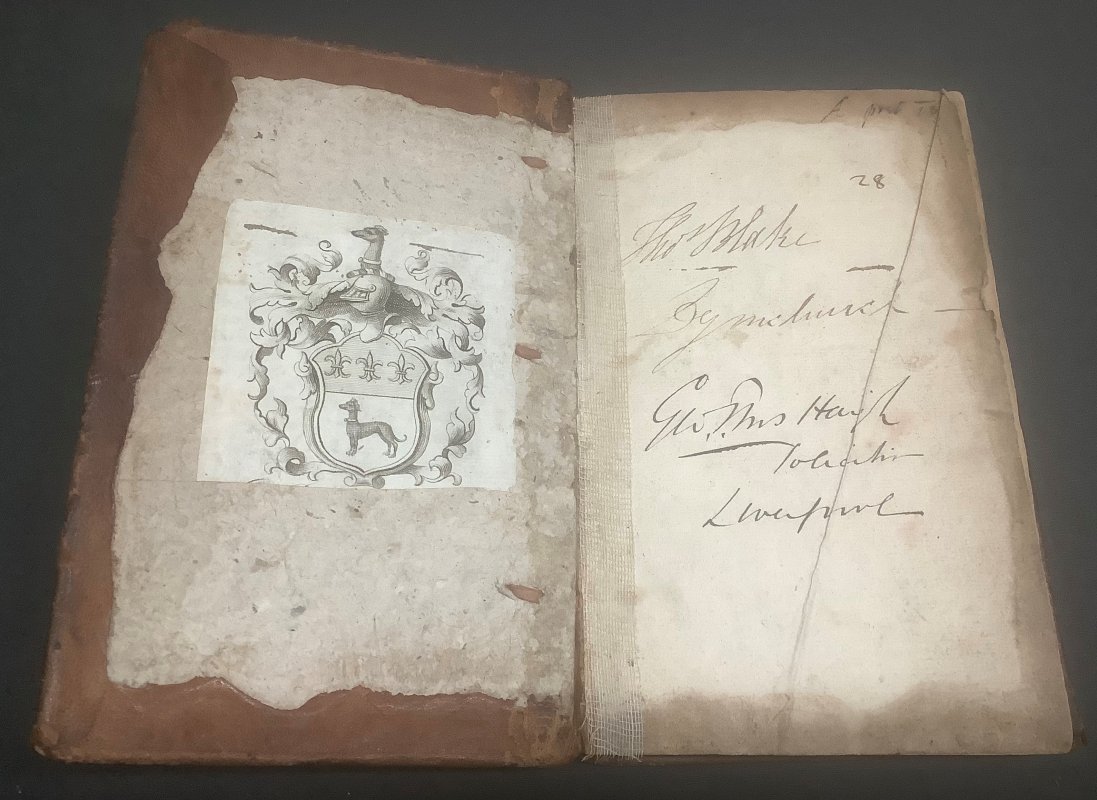 28
Thos Blake
Dymchurch
Geo. Thos Haigh
Solicitor
Liverpool